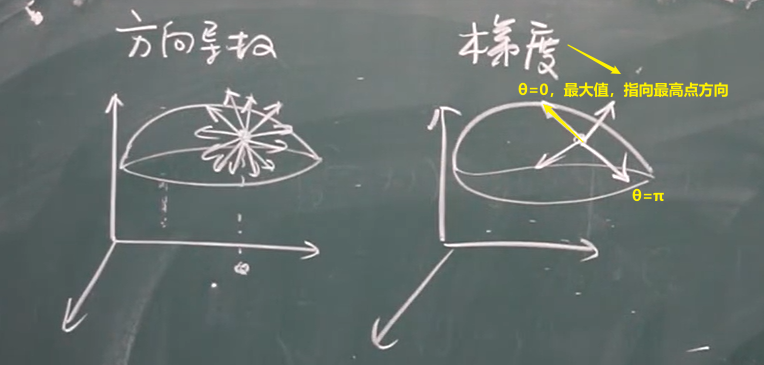 方向导数
梯度
θ=0，最大值，指向最高点方向
θ=π